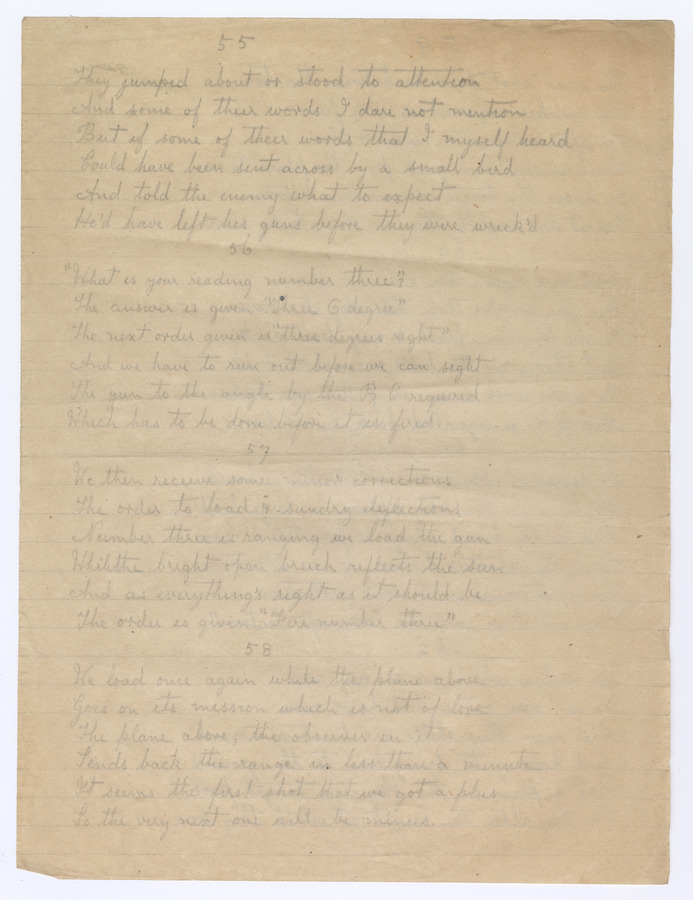 55
They jumped about or stood to attention
And some of their words I dare not mention
But if some of their words that I myself heard
Could have been sent across by a small bird
And told the enemy what to expect
He'd have left his guns before they were wreck'd
56
"What is your reading number three"?
The answer is given "Three 6 degree"
The next order given is "three degrees right"
And we have to run out before we can sight
The gun to the angle by the B C required
Which has to be done before it is fired.
57
We then receive some minor corrections
The order to load & sundry deflections
Number three is ranging we load the gun
While the bright open breech reflects the sun
And as everything's right as it should be
The order is given "Fire number three"
58
We load once again while the plane above
Goes on its mission which is not of love
The plane above, the observer in it
Sends back the range in less than a minute
It seems the first shot that we got a plus
So the very next one will be minus.